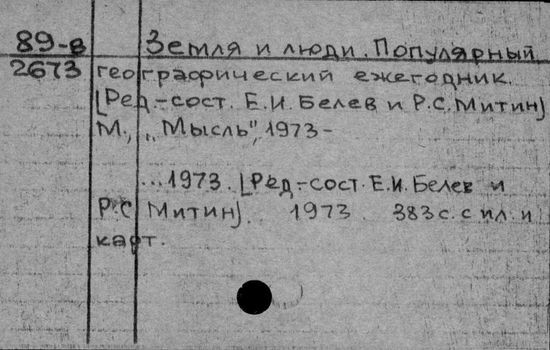 89-в Земля и люди. Популярный
2673 географический ежегодник.
[Ред-сост. Е.И. Белев и Р.С. Митин]
М., „Мысль", 1973-
...1973. [Ред-сост. Е.И. Белев и
Р.С Митин]. 1973. 383 с. с ил. и
карт.